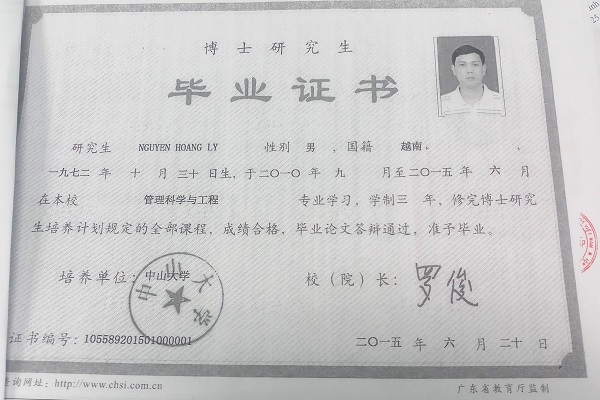 博士研究生
毕业证书
研究生 NGUYEN HOANG LY 性别 男 、国籍 越南。
一九七二 年 十 月 三十 日生，于二〇一〇 年 九 月至二〇一五 年 六 月
在本校 管理科学与工程 专业学习，学制三 年，修完博士研究
生培养计划规定的全部课程，成绩合格，毕业论文答辩通过，准予毕业。
培养单位：中山大学 校（院）长：罗俊
中山大学
证书编号：105589201501000001 二〇一五 年 六 月 二十 日
查询网址：http://www.chsi.com.cn 广东省教育厅监制
.nh
25